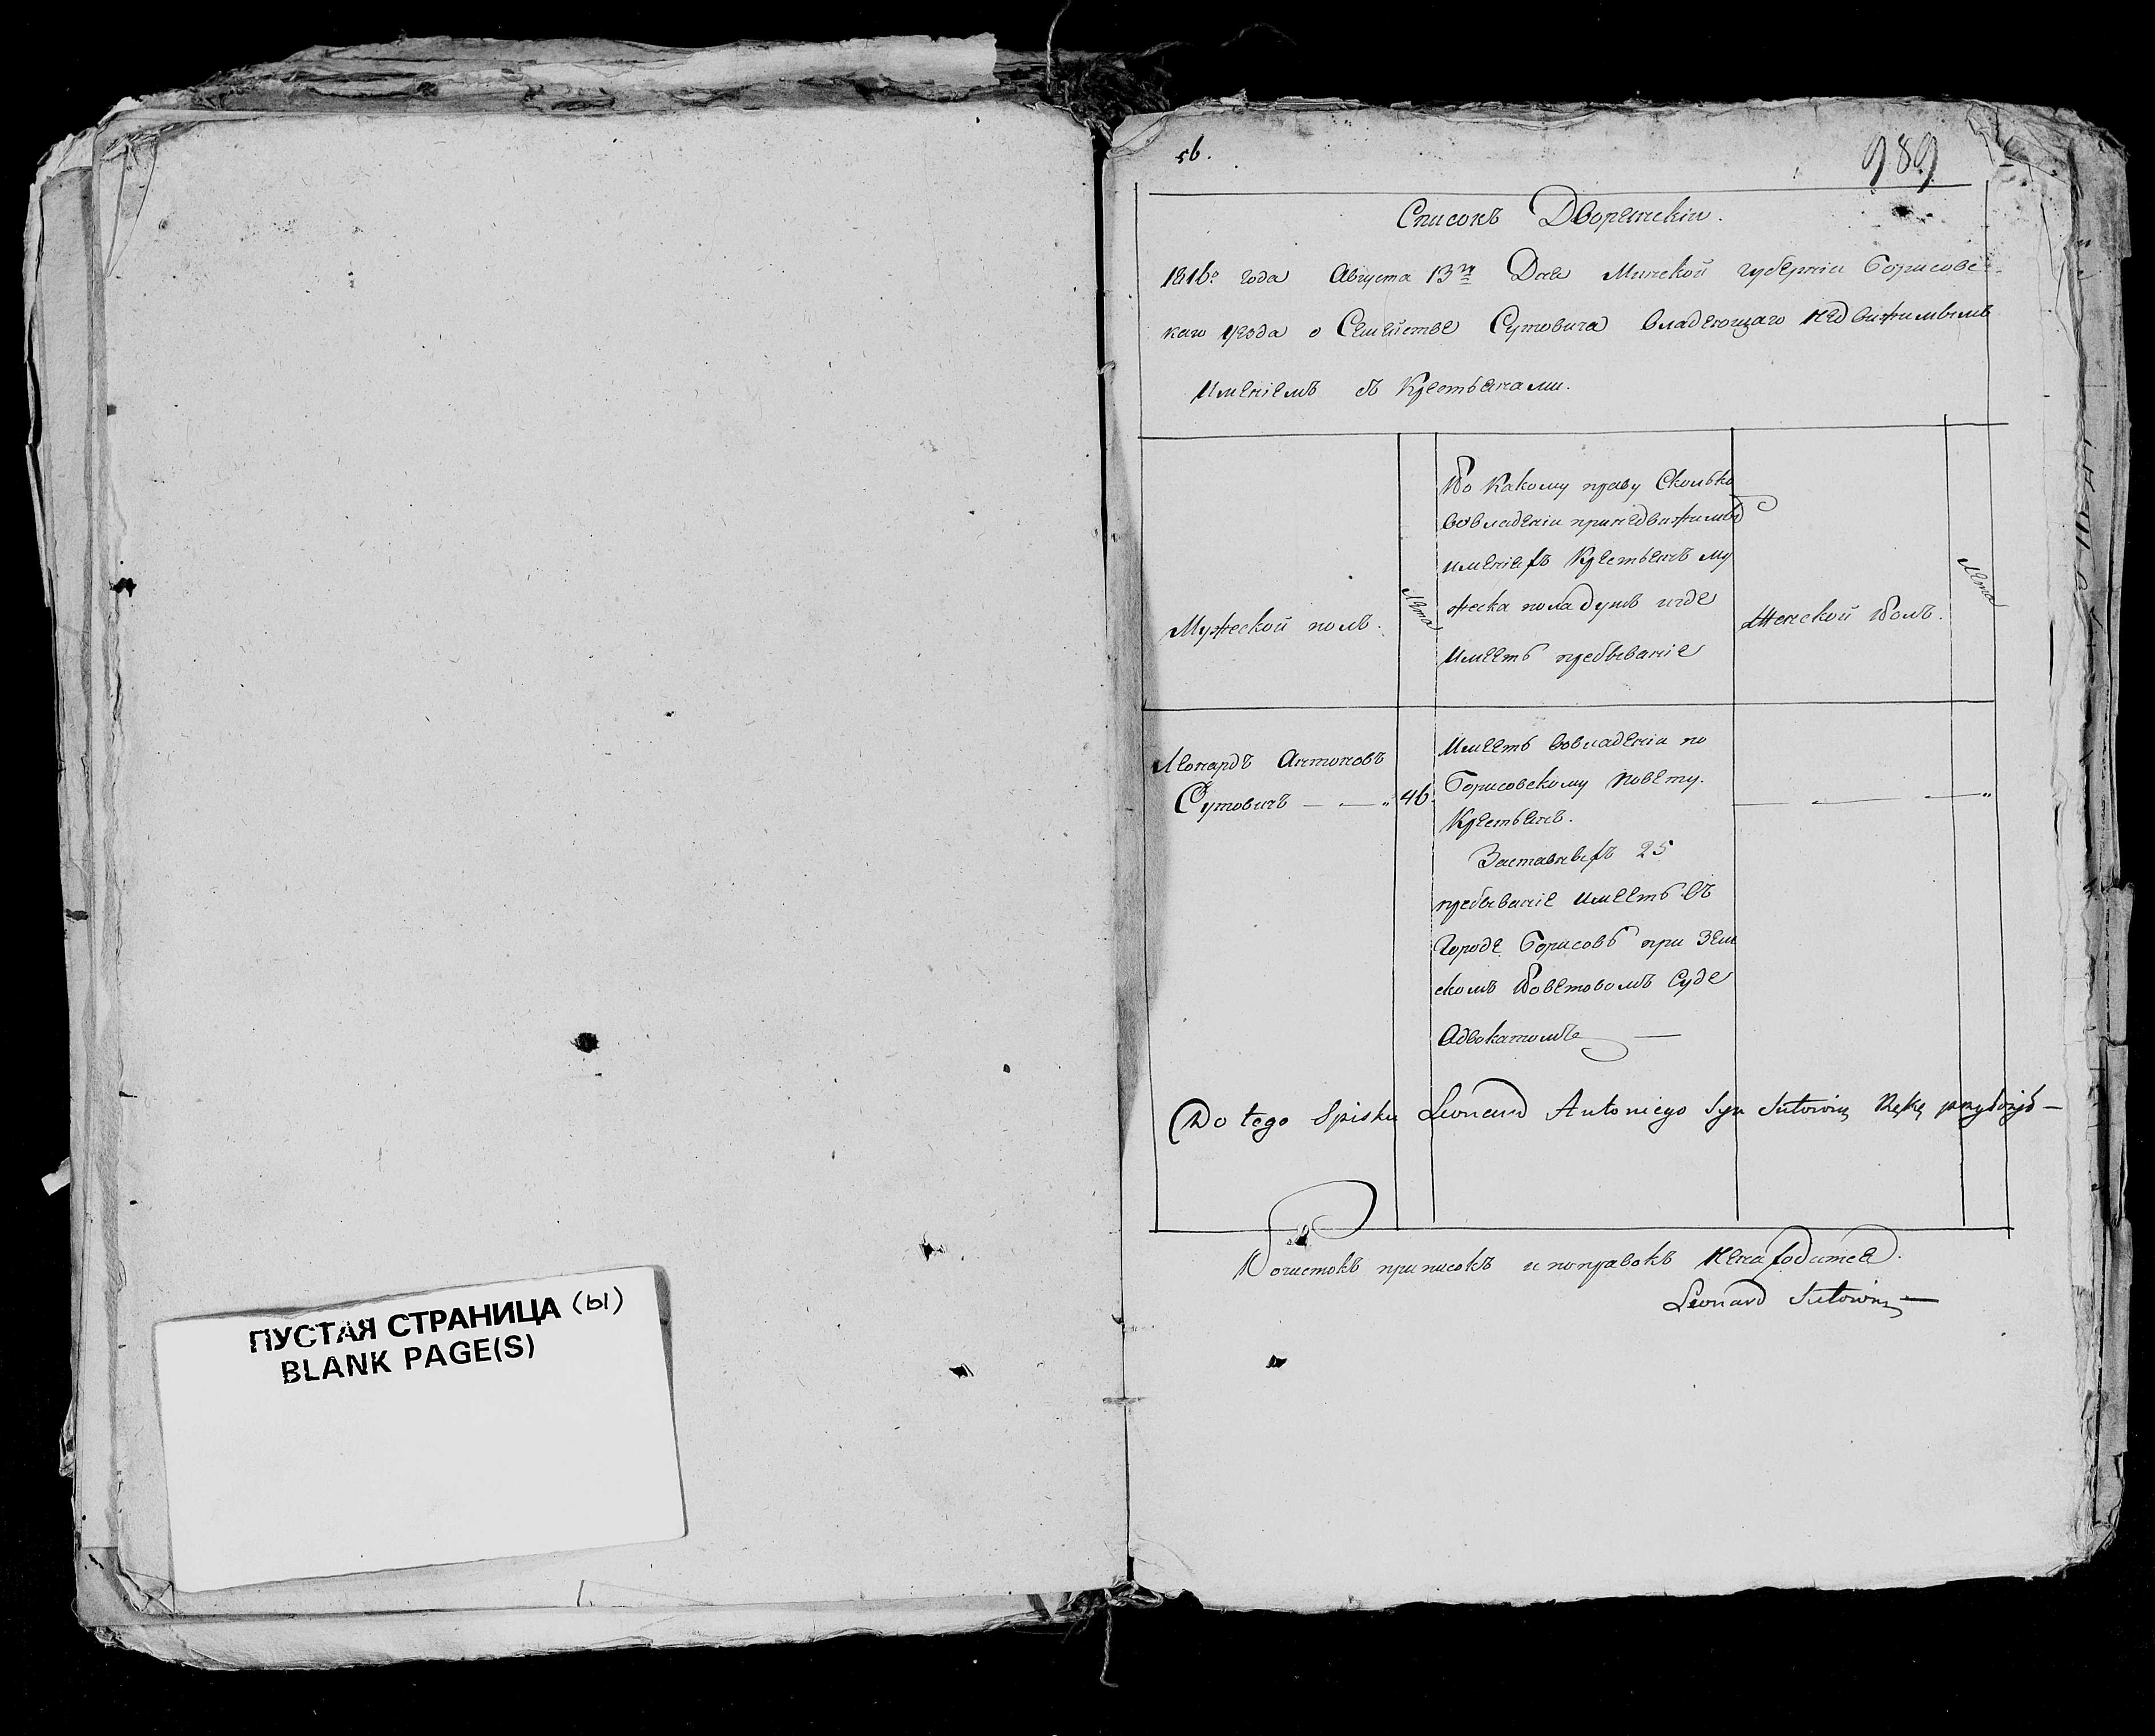 ПУСТАЯ СТРАНИЦА (ы)
BLANK PAGE(S)
56.
989
Списокъ Дворянскій.
1816го года Августа 13го Дня Минской губерніи Борисовс-
каго уезда о Семействе Сутовича владеющаго недвижимымъ
Именіемъ съ Крестьянами.
Мужеской полъ.
Лета
По Какому праву Сколько
вовладеніи принедвижимыхъ
именіехъ Крестьянъ му
жеска пола душъ игде
Имеетъ пребываніе
Женской Полъ.
Лета
Леонардъ Антоновъ
Сутовичъ — — „
46.
Имеетъ вовладеніи по
Борисовскому повету.
Крестьянъ.
Заставныхъ 25
пребываніе имеетъ въ
городе Борисовъ при Зем
скомъ Поветовомъ Суде
Адвокатомъ —
Do tego Spisku Leonard Antoniego Syn Sutowicz Rękę przyłożył —
Почистокъ приписокъ и поправокъ ненаходится.
Leonard Sutowicz —